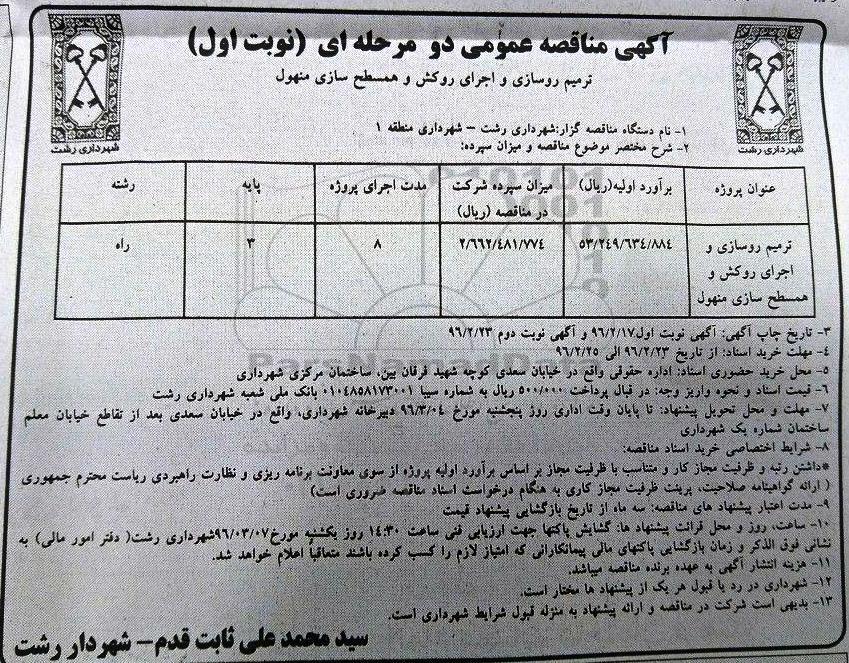 آگهی مناقصه عمومی دو مرحله ای (نوبت اول)
ترمیم روسازی و اجرای روکش و همسطح سازی منهول
شهرداری رشت
شهرداری رشت
۱- نام دستگاه مناقصه گزار:شهرداری رشت – شهرداری منطقه ۱
۲- شرح مختصر موضوع مناقصه و میزان سپرده:
عنوان پروژه
برآورد اولیه(ریال)
میزان سپرده شرکت در مناقصه (ریال)
مدت اجرای پروژه
پایه
رشته
ترمیم روسازی و
اجرای روکش و
همسطح سازی منهول
۵۳/۲۴۹/۶۳۴/۸۸۴
۲/۶۶۲/۴۸۱/۷۷۴
۸
۳
راه
۳- تاریخ چاپ آگهی: آگهی نوبت اول۹۶/۲/۱۷ و آگهی نوبت دوم ۹۶/۲/۲۳
۴- مهلت خرید اسناد: از تاریخ ۹۶/۲/۲۳ الی ۹۶/۲/۲۵
۵- محل خرید حضوری اسناد: اداره حقوقی واقع در خیابان سعدی کوچه شهید فرقان بین، ساختمان مرکزی شهرداری
۶- قیمت اسناد و نحوه واریز وجه: در قبال پرداخت ۵۰۰/۰۰۰ ریال به شماره سیبا ۰۱۰۴۸۵۸۱۷۳۰۰۱ بانک ملی شعبه شهرداری رشت
۷- مهلت و محل تحویل پیشنهاد: تا پایان وقت اداری روز پنجشنبه مورخ ۹۶/۳/۰۴ دبیرخانه شهرداری، واقع در خیابان سعدی بعد از تقاطع خیابان معلم
ساختمان شماره یک شهرداری
۸- شرایط اختصاصی خرید اسناد مناقصه:
*داشتن رتبه و ظرفیت مجاز کار و متناسب با ظرفیت مجاز بر اساس برآورد اولیه پروژه از سوی معاونت برنامه ریزی و نظارت راهبردی ریاست محترم جمهوری
( ارائه گواهینامه صلاحیت، پرینت ظرفیت مجاز کاری به هنگام درخواست اسناد مناقصه ضروری است)
۹- مدت اعتبار پیشنهاد های مناقصه: سه ماه از تاریخ بازگشایی پیشنهاد قیمت
۱۰- ساعت، روز و محل قرائت پیشنهاد ها: گشایش پاکتها جهت ارزیابی فنی ساعت ۱۴:۳۰ روز یکشنبه مورخ۹۶/۰۳/۰۷شهرداری رشت( دفتر امور مالی) به
نشانی فوق الذکر و زمان بازگشایی پاکتهای مالی پیمانکارانی که امتیاز لازم را کسب کرده باشند متعاقباً اعلام خواهد شد.
۱۱- هزینه انتشار آگهی به عهده برنده مناقصه میباشد.
۱۲- شهرداری در رد یا قبول هر یک از پیشنهاد ها مختار است.
۱۳- بدیهی است شرکت در مناقصه و ارائه پیشنهاد به منزله قبول شرایط شهرداری است.
سید محمد علی ثابت قدم– شهردار رشت
ParsNamadData